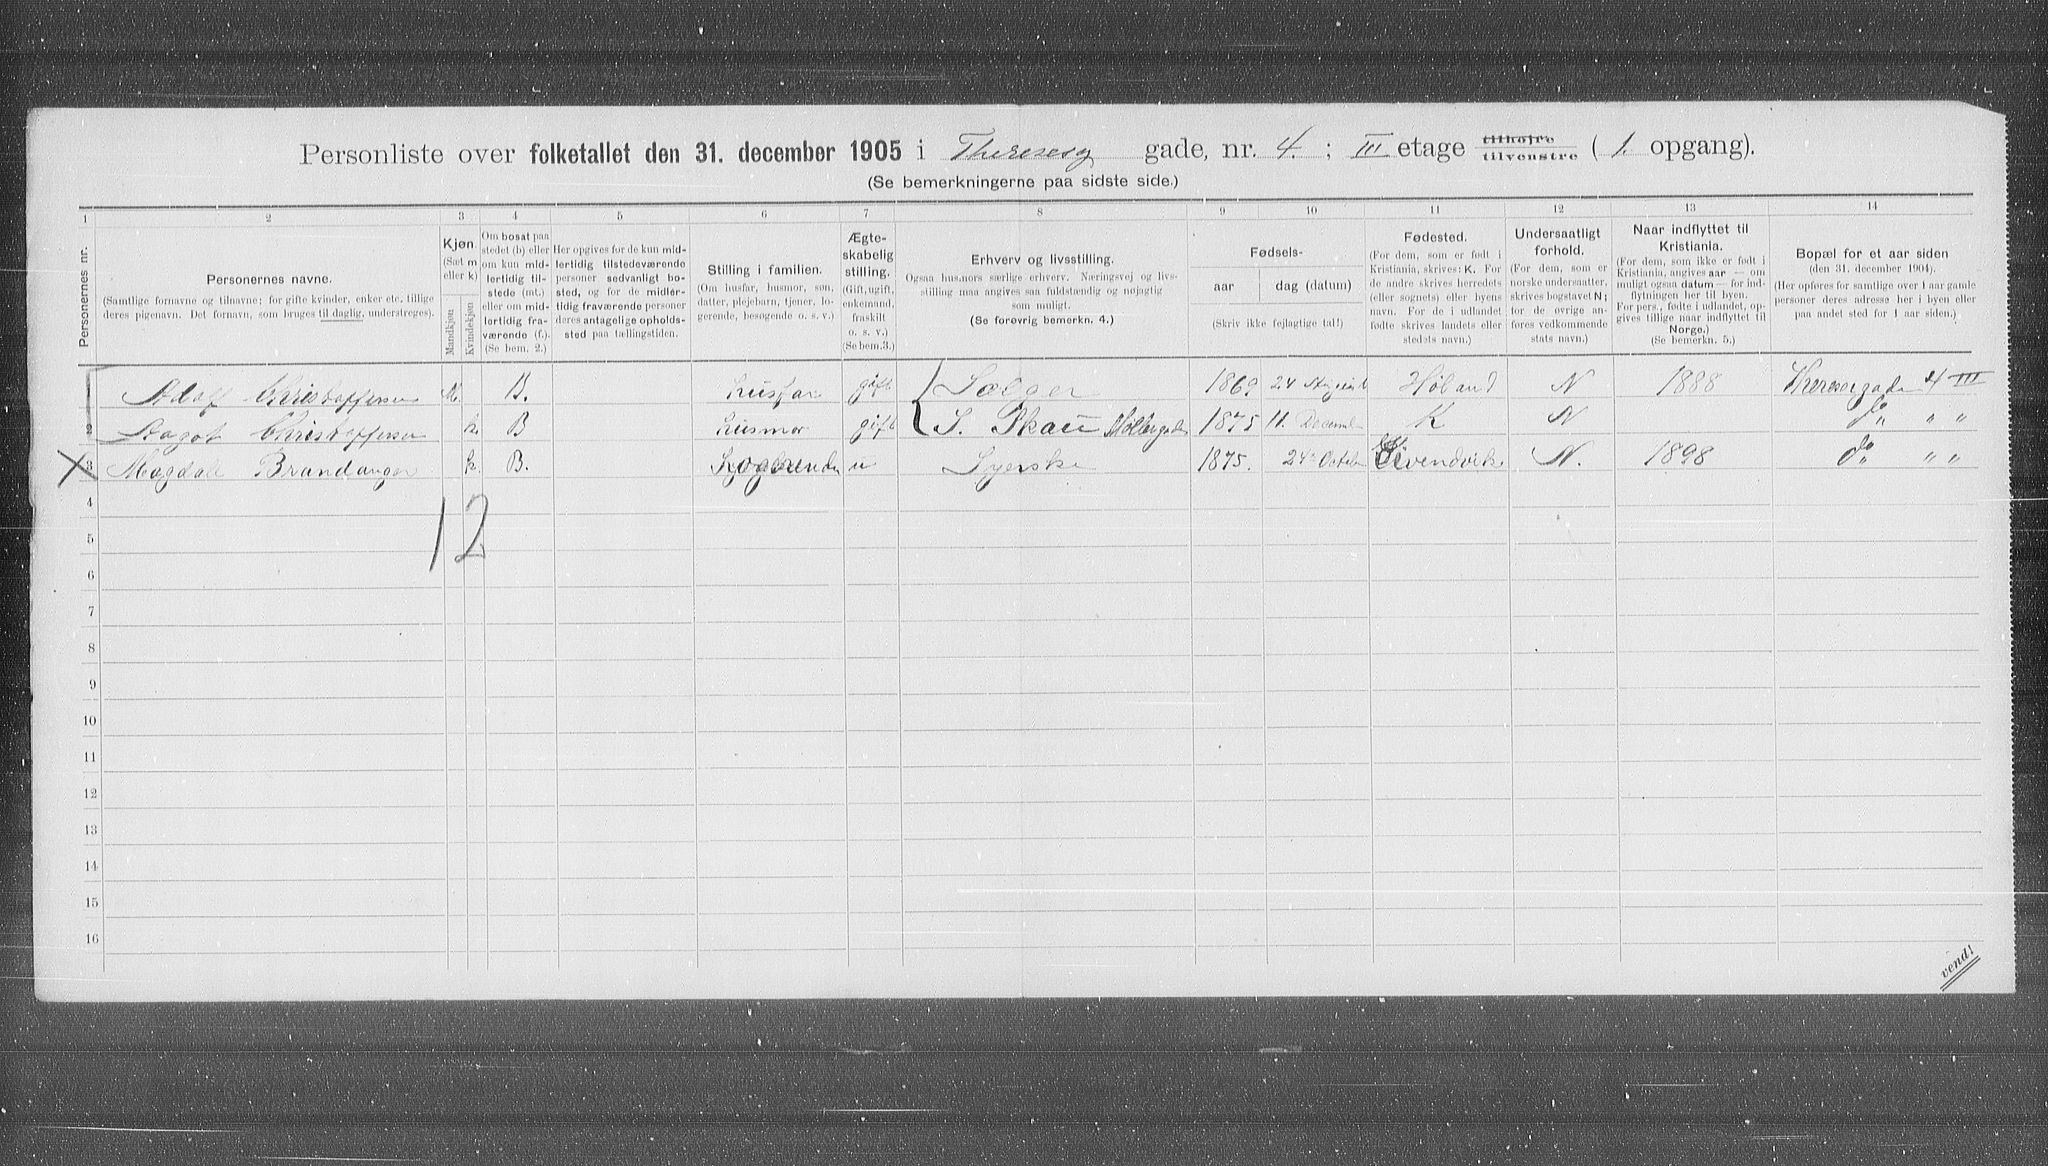 Personliste over folketallet den 31. december 1905 i Theresesg gade, nr. 4. ; III etage tilhøjre tilvenstre ( 1. opgang).
(Se bemerkningerne paa sidste side.)
1 2 3 4 5 6 7 8 9 10 11 12 13 14
Personernes nr.
Personernes navne.
(Samtlige fornavne og tilnavne; for gifte kvinder, enker etc. tillige
deres pigenavn. Det fornavn, som bruges til daglig, understreges).
Kjøn
(Sæt m
eller k)
Mandkjøn
Kvindekjøn
Om bosat paa
stedet (b) eller
om kun mid-
lertidig til-
stede (mt.)
eller om mid-
lertidig fra-
værende (f.).
(Se bem. 2.)
Her opgives for de kun mid-
lertidig tilstedeværende
personer sedvanligt bo-
sted, og for de midler-
tidig fraværende personer
deres antagelige opholds-
sted paa tællingstiden.
Stilling i familien.
(Om husfar, husmor, søn,
datter, plejebarn, tjener, lo-
gerende, besøgende o. s. v.)
Ægte-
skabelig
stilling.
(Gift, ugift,
enkemand,
fraskilt
o. s. v.)
(Se bem.3.)
Erhverv og livsstilling.
Ogsaa husmors særlige erhverv. Næringsvej og livs-
stilling maa angives saa fuldstændig og nøjagtig
som muligt.
(Se forøvrig bemerkn. 4.)
Fødsels-
aar dag (datum)
(Skriv ikke fejlagtige tal!)
Fødested.
(For dem, som er født i
Kristiania, skrives: K. For
de andre skrives herredets
(eller sognets) eller byens
navn. For de i udlandet
fødte skrives landets eller
stedets navn.)
Undersaatligt
forhold.
(For dem, som er
norske undersaatter,
skrives bogstavet N;
for de øvrige an-
føres vedkommende
stats navn.)
Naar indflyttet til
Kristiania.
(For dem, som ikke er født i
Kristiania, angives aar — om
muligt ogsaa datum — for ind-
flytningen her til byen.
For pers., fødte i udlandet, op-
gives tillige naar indflyttet til
Norge.)
(Se bemerkn. 5.)
Bopæl for et aar siden
(den 31. december 1904).
(Her opføres for samtlige over 1 aar gamle
personer deres adresse her i byen eller
paa andet sted for 1 aar siden.)
1 Adolf Christoffersen M. B. husfar gift Sælger 1869 24 August Høland N 1888 Theresesgade 4 III
2 Dagot Christoffersen k. B husmor gift S. Skau Holbergsgade 1875 11. Decemb K N do " "
3 Magdali Brandanger k. B. Logerende u Syerske 1875. 24 October Eivendvik N. 1898 do " "
12
4
5
6
7
8
9
10
11
12
13
14
15
16
vend!